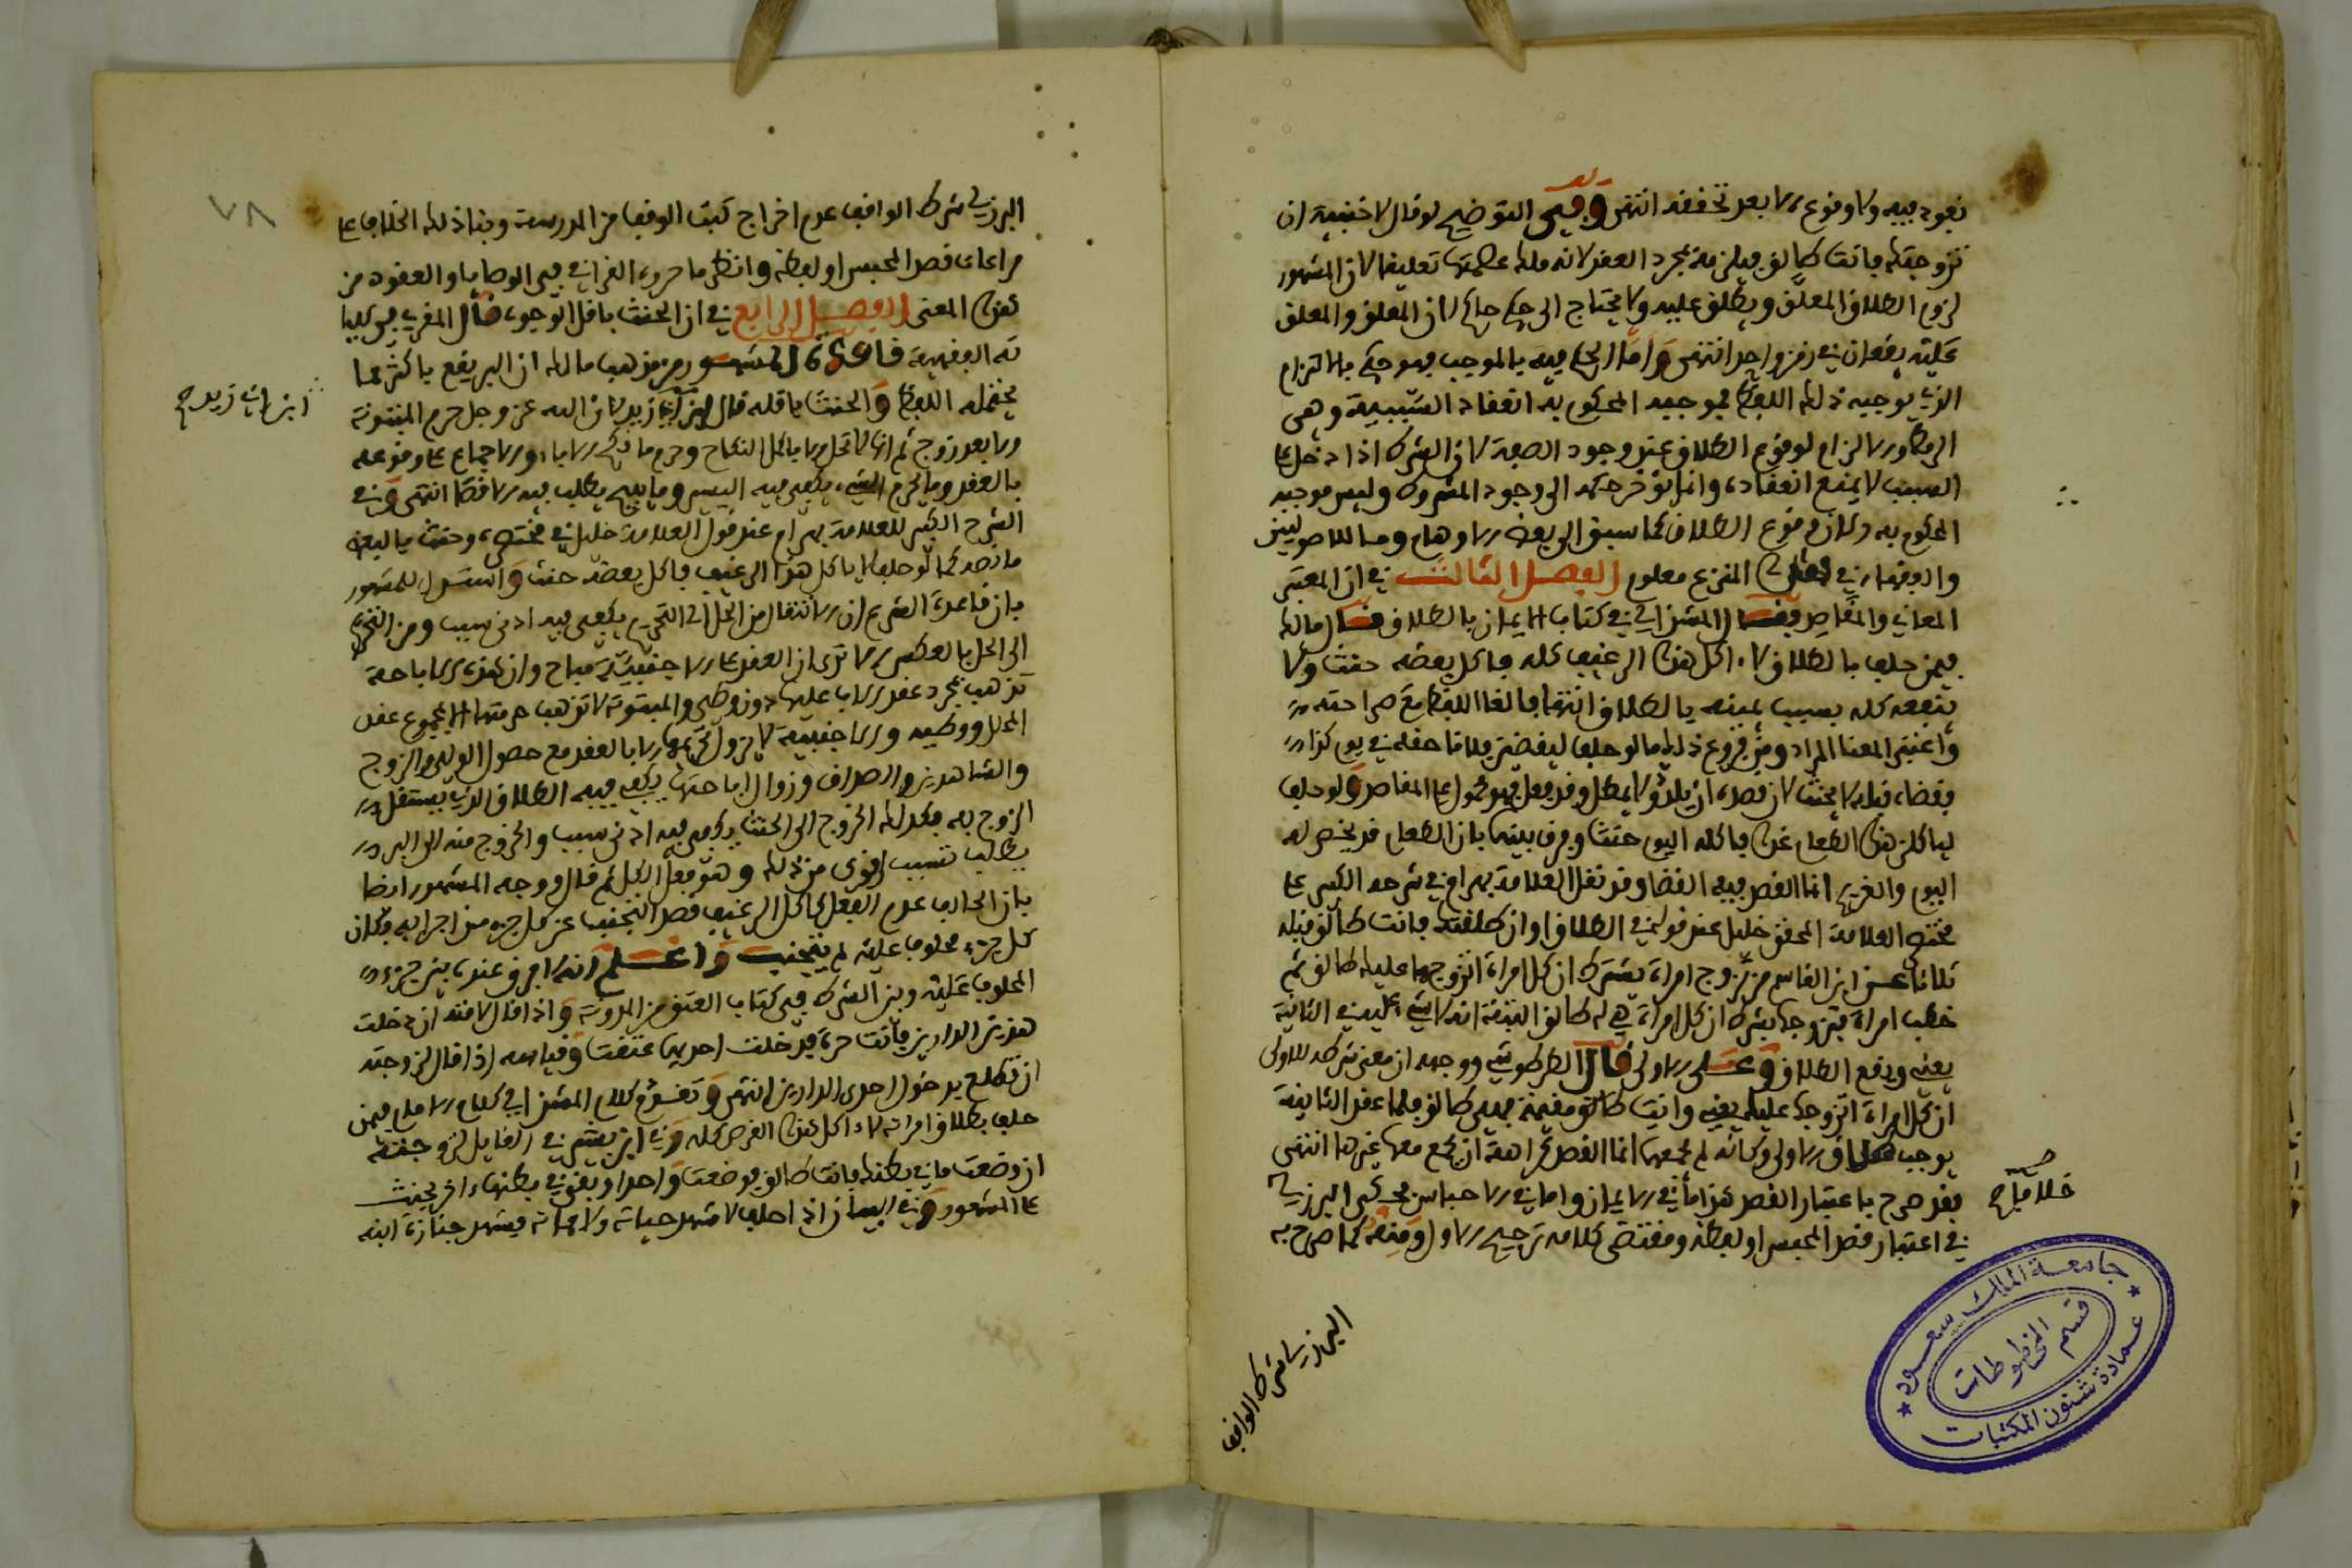 نفوذ فيه ولا وقوع الا بعد تحققه انتهى وفي التوضيح لو قال لاجنبية ان
تزوجتك فانت طالق فيلزمه بمجرد العقد لانه ملك عصمتها تعليقا لان المشهور
لزوم الطلاق المعلق ويطلق عليه ولا يحتاج الى حكم حاكم لان المعلق والمعلق
عليه يقعان في زمن واحد انتهى واما الحكم فيه بالموجب فهو حكم بالتزام
الذي يوجبه ذلك اللفظ فموجبه المحكوم به انعقاد السببية وهي
الربط والالزام لوقوع الطلاق عند وجود الصفة لان الشرط اذا دخل على
السبب لا يمنع انعقاده وانما يؤخر حكمه الى وجود المشروط وليس موجبه
المحكوم به وقوع الطلاق كما سبق الى بعض الاوهام وما للاصوليين
والفقهاء في المنزع معلوم الفصل الثالث في ان المعتبر
المعاني والمقاصد المشذالي في كتاب الايمان بالطلاق قال مالك
فيمن حلف بالطلاق لا اكل هذا الرغيف كله فاكل بعضه حنث ولا
ينفعه كله بسبب يمينه بالطلاق انتهى فالغا اللفظ مع صراحته
واعتبر المعنا المراد ومن فروع ذلك ما لو حلف ليقضين فلانا حقه في يوم كذا
فقضاه قبله لا يحنث لان قصده ان يلدوا لا يمطل وقد فعل فهو محمول على المقاصد ولو حلف
لياكلن هذا الطعام غدا فاكله اليوم حنث وفرق بينهما بان الطعام قد يخص له
اليوم والغريم انما القصد فيه القضا وقد نقل العلامة بهرام في شرحه الكبير على
مختصر العلامة المحقق خليل عند قوله في الطلاق او ان طلقتك فانت طالق قبله
ثلاثا عن ابن القاسم من تزوج امراة بشرط ان كل امراة اتزوجها عليك طالق ثم
خطب امراة فتزوجها بشرط ان كل امراة لي طالق البتة انه لا شيء عليه في الثانية
يعني ويقع الطلاق على الاولى قال الطرطوشي ووجهه ان معنى شرطه للاولى
ان كل امراة اتزوجها عليك يعني وانت مقيمة فهي طالق فلما عقد الثانية
يوجب طلاق الاولى وكانه لم يجمعها انما القصد كراهة ان يجمع معها غيرها انتهى
فقد صرح باعتبار القصد هذا ما في الايمان واما في الاحباس فحكى البرزلي
في اعتبار قصد المحبس او لفظه ومقتضى كلامه ترجيح الاول ومنه كما صرح به
خلافا صح
البرزلي شرط الواقف
جامعة الملك سعود
قسم المخطوطات
عمادة شئون المكتبات
٧٨
البرزلي شرط الواقف عدم اخراج كتب الوقف من المدرسة وبناذلك الخلاف على
مراعات قصد المحبس او لفظه وانظر ما حرره القرافي في الوصايا والعقود من
هذا المعنى الفصل الرابع في ان الحنث باقل الوجوه قال المقري في كليا
ته الفقهية قاعدة المشهور من مذهب مالك ان البر يقع باكثر ما
يحتمله اللفظ والحنث باقله قال ابن ابي زيد لان الله عز وجل حرم المبتوتة
الا بعد زوج ثم انها لا تحل الا باكمل النكاح وحرم ما نكح الاباء والاجماع على وقوعه
بالعقد وما يحرم الشيء يكفي فيه اليسير وما يبيح يطلب فيه الاقصا انتهى وفي
الشرح الكبير للعلامة بهرام عند قول العلامة خليل في مختصره وحنث بالبعض
ما نصه كما لو حلف لا ياكل هذا الرغيف فاكل بعضه حنث واستدل للمشهور
بان قاعدة الشرع ان الانتقال من الحل الى التحريم يكفي فيه ادنى سبب ومن التحريم
الى الحل بالعكس الا ترى ان العقد على الاجنبية مباح وان هذه الاباحة
تذهب بمجرد عقد الاب عليها دون وطئ والمبتوتة لا تذهب حرمتها الا بمجموع عقد
المحلل ووطيه والاجنبية لا يزول تحريمها الا بالعقد مع حصول الولي والزوج
والشاهدين والصداق وزوال اباحتها يكفي فيه الطلاق الذي يستقل
الزوج به فكذلك الخروج الى الحنث يكفي فيه ادنى سبب والخروج منه الى البر
يطالب بسبب اقوى من ذلك وهو فعل الكل ثم قال ووجه المشهور ايضا
بان الحالف على عدم الفعل كاكل الرغيف قصد التجنب عن كل جزء من اجزايه فكان
كل جزء محلوف عليه لم يتجنبه واعلم انه لا فرق عنده بين جزء
المحلوف عليه وبين الشرط ففي كتاب العتق من المدونة واذا قال لامته ان دخلت
هذين الدارين فانت حرة فدخلت احديهما عتقت وقياسه اذا قال لزوجته
ان تطلق بدخول احدى الدارين انتهى وتقدم كلام المشذالي في كلام الامام فيمن
حلف بطلاق امراته لا اكل هذا القرص كله وفي ابن بشير في القايل لزوجته
ان وضعت ما في بطنك فانت طالق فوضعت واحدا وبقي في بطنها اخر يحنث
على المشهور وفي البيان اذا حلف لا شهد حياته ولا مماته فيشهد جنازة ابنه
ابن ابي زيد صح